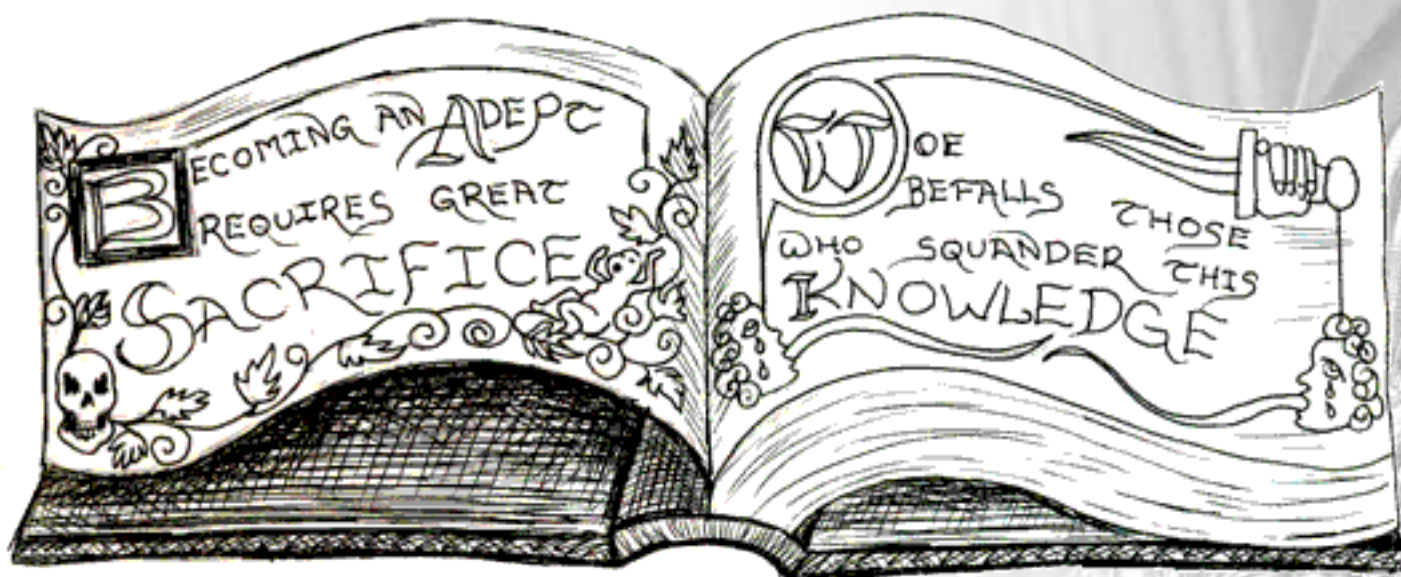 BECOMING AN ADEPT
REQUIRES GREAT
SACRIFICE
WOE
BEFALLS THOSE
WHO SQUANDER THIS
KNOWLEDGE